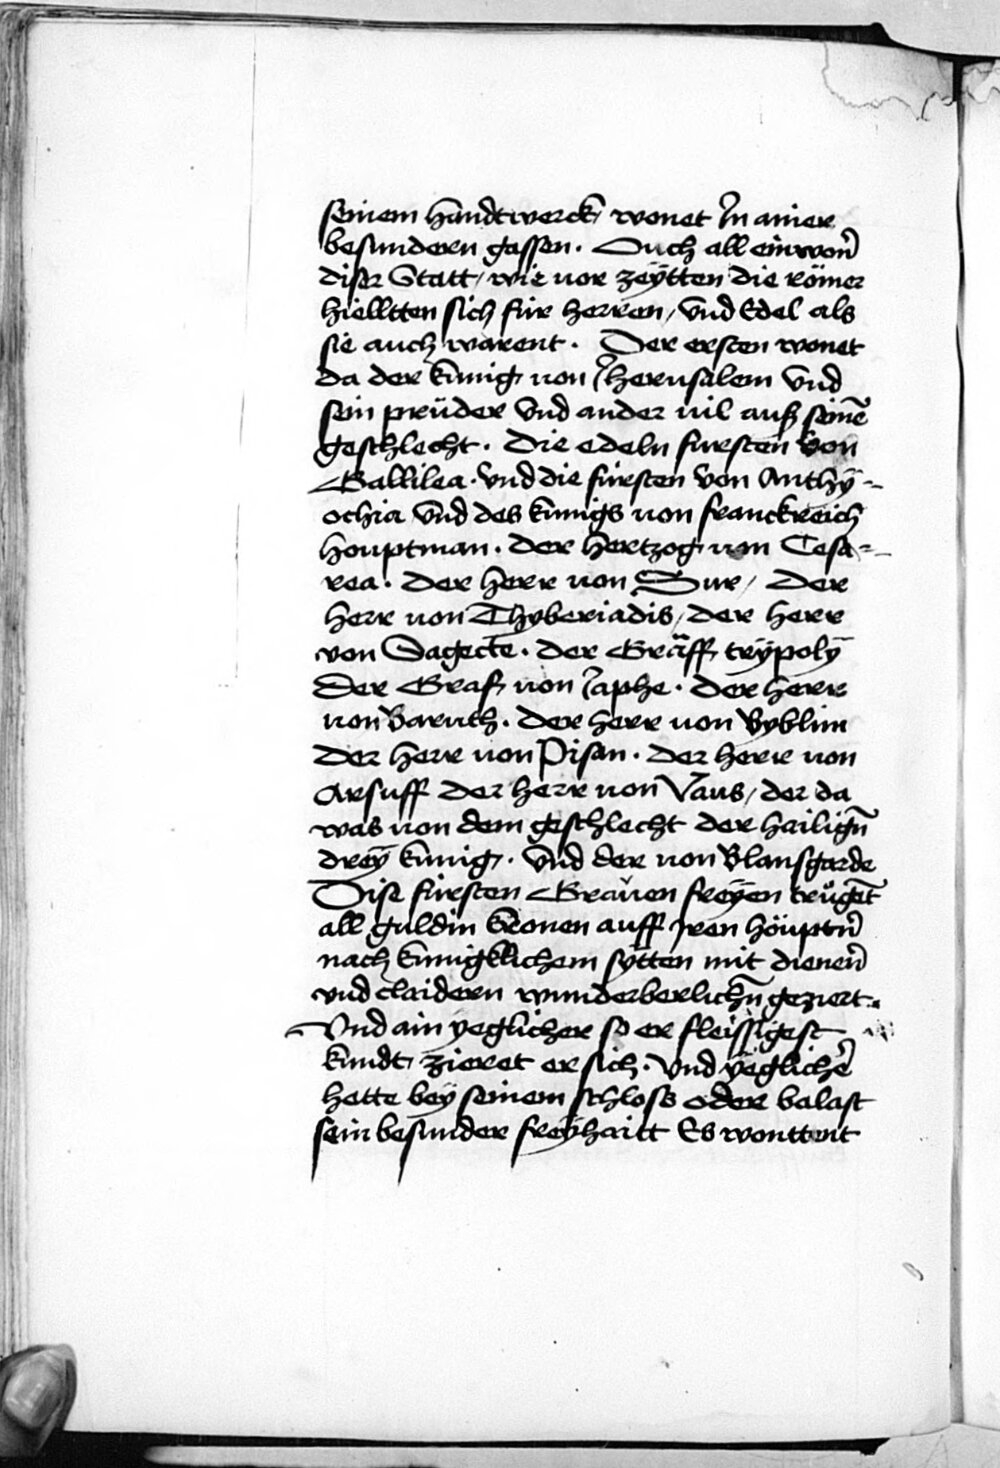 seinem handtwerck, wonet Jn ainer
besundern gassen. Ouch all einwon̄
diser Statt, wie vor zeÿtten die römer
hielltten sich für herren, vnd Edel als
sie auch warent. Der ersten wonet
da der künig von Jherusalem vnd
sein prüder vnd ander vil auß seinē
geschlecht. Die edeln fursten von
Gallilea. vnd die fürsten von Anthÿ=
ochia vnd des künigs von franckreich
houptman. der hertzog von Cesa=
rea. der herr von Sur, der
herr von Thyberiadis, der herr
von Sagecte. der Gräff trÿpolÿ
der Graf von Japhe. der herr
von Baruth. der herr von Byblim
der herr von Pisan. der herr von
Arsuff der herr von Vaus, der da
was von dem geschlecht der hailign̄
dreÿ künig. vnd der von Blansgarde
Dise fürsten Graven freÿen trůgēt
all guldin Cronen auff Jren höuptn̄
nach künigklichem sÿtten mit dienern̄
vnd claidern wunderberlichn̄ geziert.
Vnd ain yeglicher so er fleissigest
kundt, zieret er sich. vnd ÿeglichē
hette beÿ seinem schloss oder balast
sein besunder freÿhaitt Es wonttent